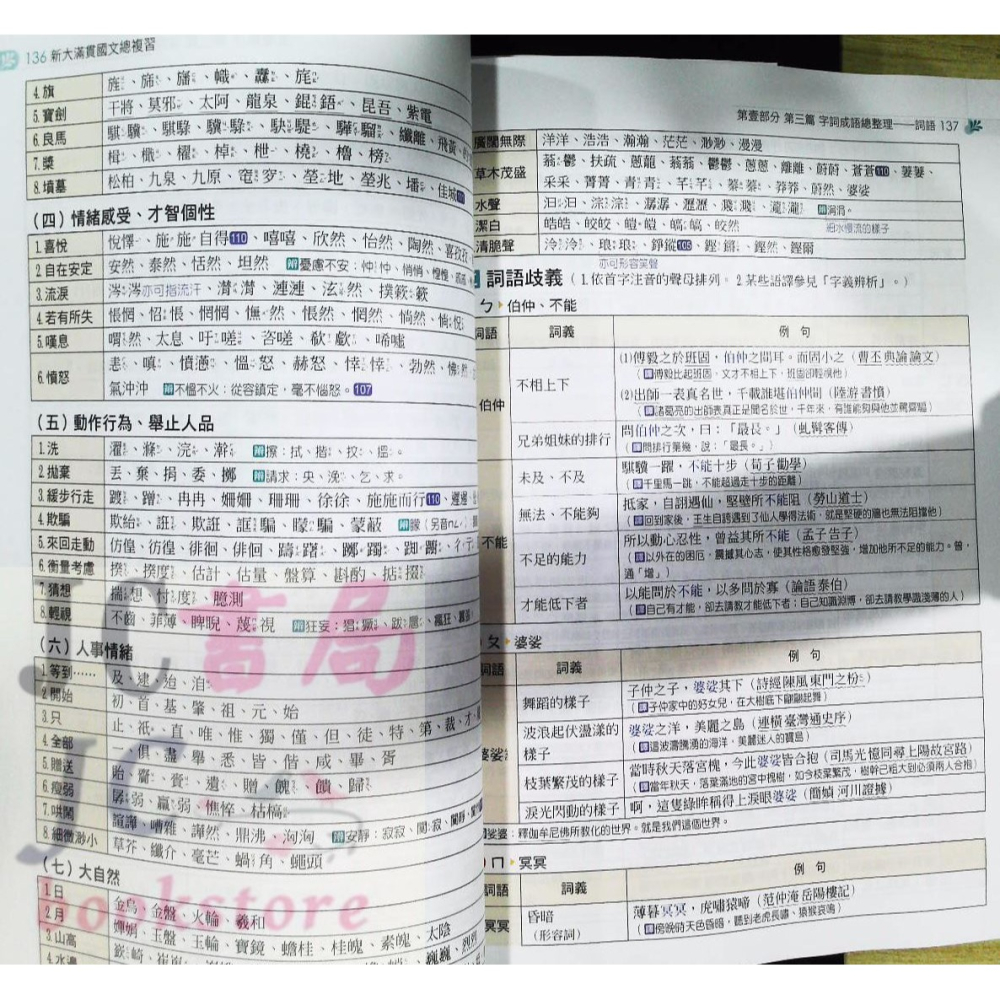 136 新大滿貫國文總複習
4.旗 旌、旆、旛、幟、纛、旄
5.寶劍 干將、莫邪、太阿、龍泉、錕鋙、昆吾、紫電
6.良馬 騏驥、騏騄、驥騄、駃騠、驊騮、纖離、飛黃
7.槳 楫、櫂、棹、枻、橈、櫓、榜
8.墳墓 松柏、九泉、九原、窀穸、塋地、塋兆、墦、佳城
（四）情緒感受、才智個性
1.喜悅 悅懌、施施自得110、嘻嘻、欣然、怡然、陶然、喜孜孜
2.自在安定 安然、泰然、恬然、坦然 辨憂慮不安：忡忡、悄悄、惶惶
3.流淚 涔涔亦可指流汗、潸潸、漣漣、泫然、撲簌簌
4.若有所失 悵惘、惆悵、惘惘、憮然、悵然、惘然、惝然、惝怳
5.嘆息 喟然、太息、吁嗟、咨嗟、欷歔、唏噓
6.憤怒 恚、嗔、憤懣、慍怒、赫怒、悻悻、勃然、怫然
氣沖沖 辨不慍不火：從容鎮定，毫不惱怒。107
（五）動作行為、舉止人品
1.洗 濯、滌、浣、澣 辨擦：拭、揩、抆、搵。
2.拋棄 丟、棄、捐、委、擲 辨請求：央、浼、乞、求。
3.緩步行走 踱、蹭、冉冉、姍姍、珊珊、徐徐、施施而行110
4.欺騙 欺紿、誑、欺誑、誆騙、矇騙、蒙蔽
5.來回走動 仿偟、彷徨、徘徊、俳佪、躊躇、躑躅、踟躕、彳亍
6.衡量考慮 揆、揆度、估計、估量、盤算、斟酌、掂掇
7.猜想 揣想、忖度、臆測
8.輕視 不齒、菲薄、睥睨、蔑視 辨狂妄：猖獗、跋扈、瘋狂、囂張
（六）人事情緒
1.等到…… 及、逮、迨、洎
2.開始 初、首、基、肇、祖、元、始
3.只 止、祇、直、唯、惟、獨、僅、但、徒、特、第、裁、才
4.全部 一、俱、盡、舉、悉、皆、偕、咸、畢、胥
5.贈送 貽、齎、賚、遺、贈、餽、饋、歸
6.瘦弱 孱弱、羸弱、憔悴、枯槁
7.哄鬧 諠譁、嘈雜、譁然、鼎沸、洶洶 辨安靜：寂寂、闃寂
8.細微渺小 草芥、纖介、毫芒、蝸角、蠅頭
（七）大自然
1.日 金烏、金盤、火輪、羲和
2.月 嬋娟、玉盤、玉輪、寶鏡、蟾桂、桂魄、素魄、太陰
3.山高 嶔崎
第壹部分 第三篇 字詞成語總整理——詞語 137
廣闊無際 洋洋、浩浩、瀚瀚、茫茫、渺渺、漫漫
草木茂盛 蓊鬱、扶疏、蔥蘢、蓊蓊、鬱鬱、蔥蔥、離離、蔚蔚、蒼蒼110、萋萋、
采采、菁菁、青青、芊芊、蓁蓁、莽莽、蔚然、婆娑
水聲 汩汩、淙淙、潺潺、瀝瀝、濺濺、瀧瀧 辨涓涓。
細水慢流的樣子
潔白 皓皓、皎皎、皚皚、皜皜、皎然
清脆聲 泠泠、琅琅、錚鏦105、鏗鏘、鏗然、鏗爾
亦可形容笑聲
詞語歧義（1.依首字注音的聲母排列。 2.某些語譯參見「字義辨析」。）
ㄅ 伯仲、不能
詞語 詞義 例句
伯仲 不相上下 (1)傅毅之於班固，伯仲之間耳。而固小之（曹丕典論論文）
（譯傅毅比起班固，文才不相上下，班固卻輕視他）
(2)出師一表真名世，千載誰堪伯仲間（陸游書憤）
（譯諸葛亮的出師表真正是聞名於世，千年來，有誰能夠與他並駕齊驅）
兄弟姐妹的排行 問伯仲之次，曰：「最長。」（虬髯客傳）
（譯問排行第幾，說：「最長。」）
不能 未及、不及 騏驥一躍，不能十步（荀子勸學）
（譯千里馬一跳，不能超過走十步的距離）
無法、不能夠 抵家，自詡遇仙，堅壁所不能阻（勞山道士）
（譯回到家後，王生自誇遇到了仙人學得法術，就是堅硬的牆也無法阻擋他）
不足的能力 所以動心忍性，曾益其所不能（孟子告子）
（譯以外在的困厄，震撼其心志，使其性格愈發堅強，增加他所不足的能力。曾，
通「增」）
才能低下者 以能問於不能，以多問於寡（論語泰伯）
（譯自己有才能，卻去請教才能低下者；自己知識淵博，卻去請教學識淺薄的人）
ㄆ 婆娑
詞語 詞義 例句
婆娑 舞蹈的樣子 子仲之子，婆娑其下（詩經陳風東門之枌）
（譯子仲家中的好女兒，在大樹底下翩翩起舞）
波浪起伏盪漾的樣子 婆娑之洋，美麗之島（連橫臺灣通史序）
（譯這波濤擁湧的海洋，美麗迷人的寶島）
枝葉繁茂的樣子 當時秋天落宮槐，今此婆娑皆合抱（司馬光憶同尋上陽故宮路）
（譯當年秋天，落葉滿地的宮中槐樹，如今枝葉繁茂，樹幹已粗大到必須兩人合抱）
淚光閃動的樣子 啊，這隻綠眸稱得上淚眼婆娑（簡媜 河川證據）
娑婆：釋伽牟尼佛所教化的世界。就是我們這個世界。
ㄇ 冥冥
詞語 詞義 例句
冥冥 昏暗（形容詞） 薄暮冥冥，虎嘯猿啼（范仲淹岳陽樓記）
（譯傍晚時天色昏暗，聽到老虎長嘯，猿猴哀鳴）
JC書局
Bookstore